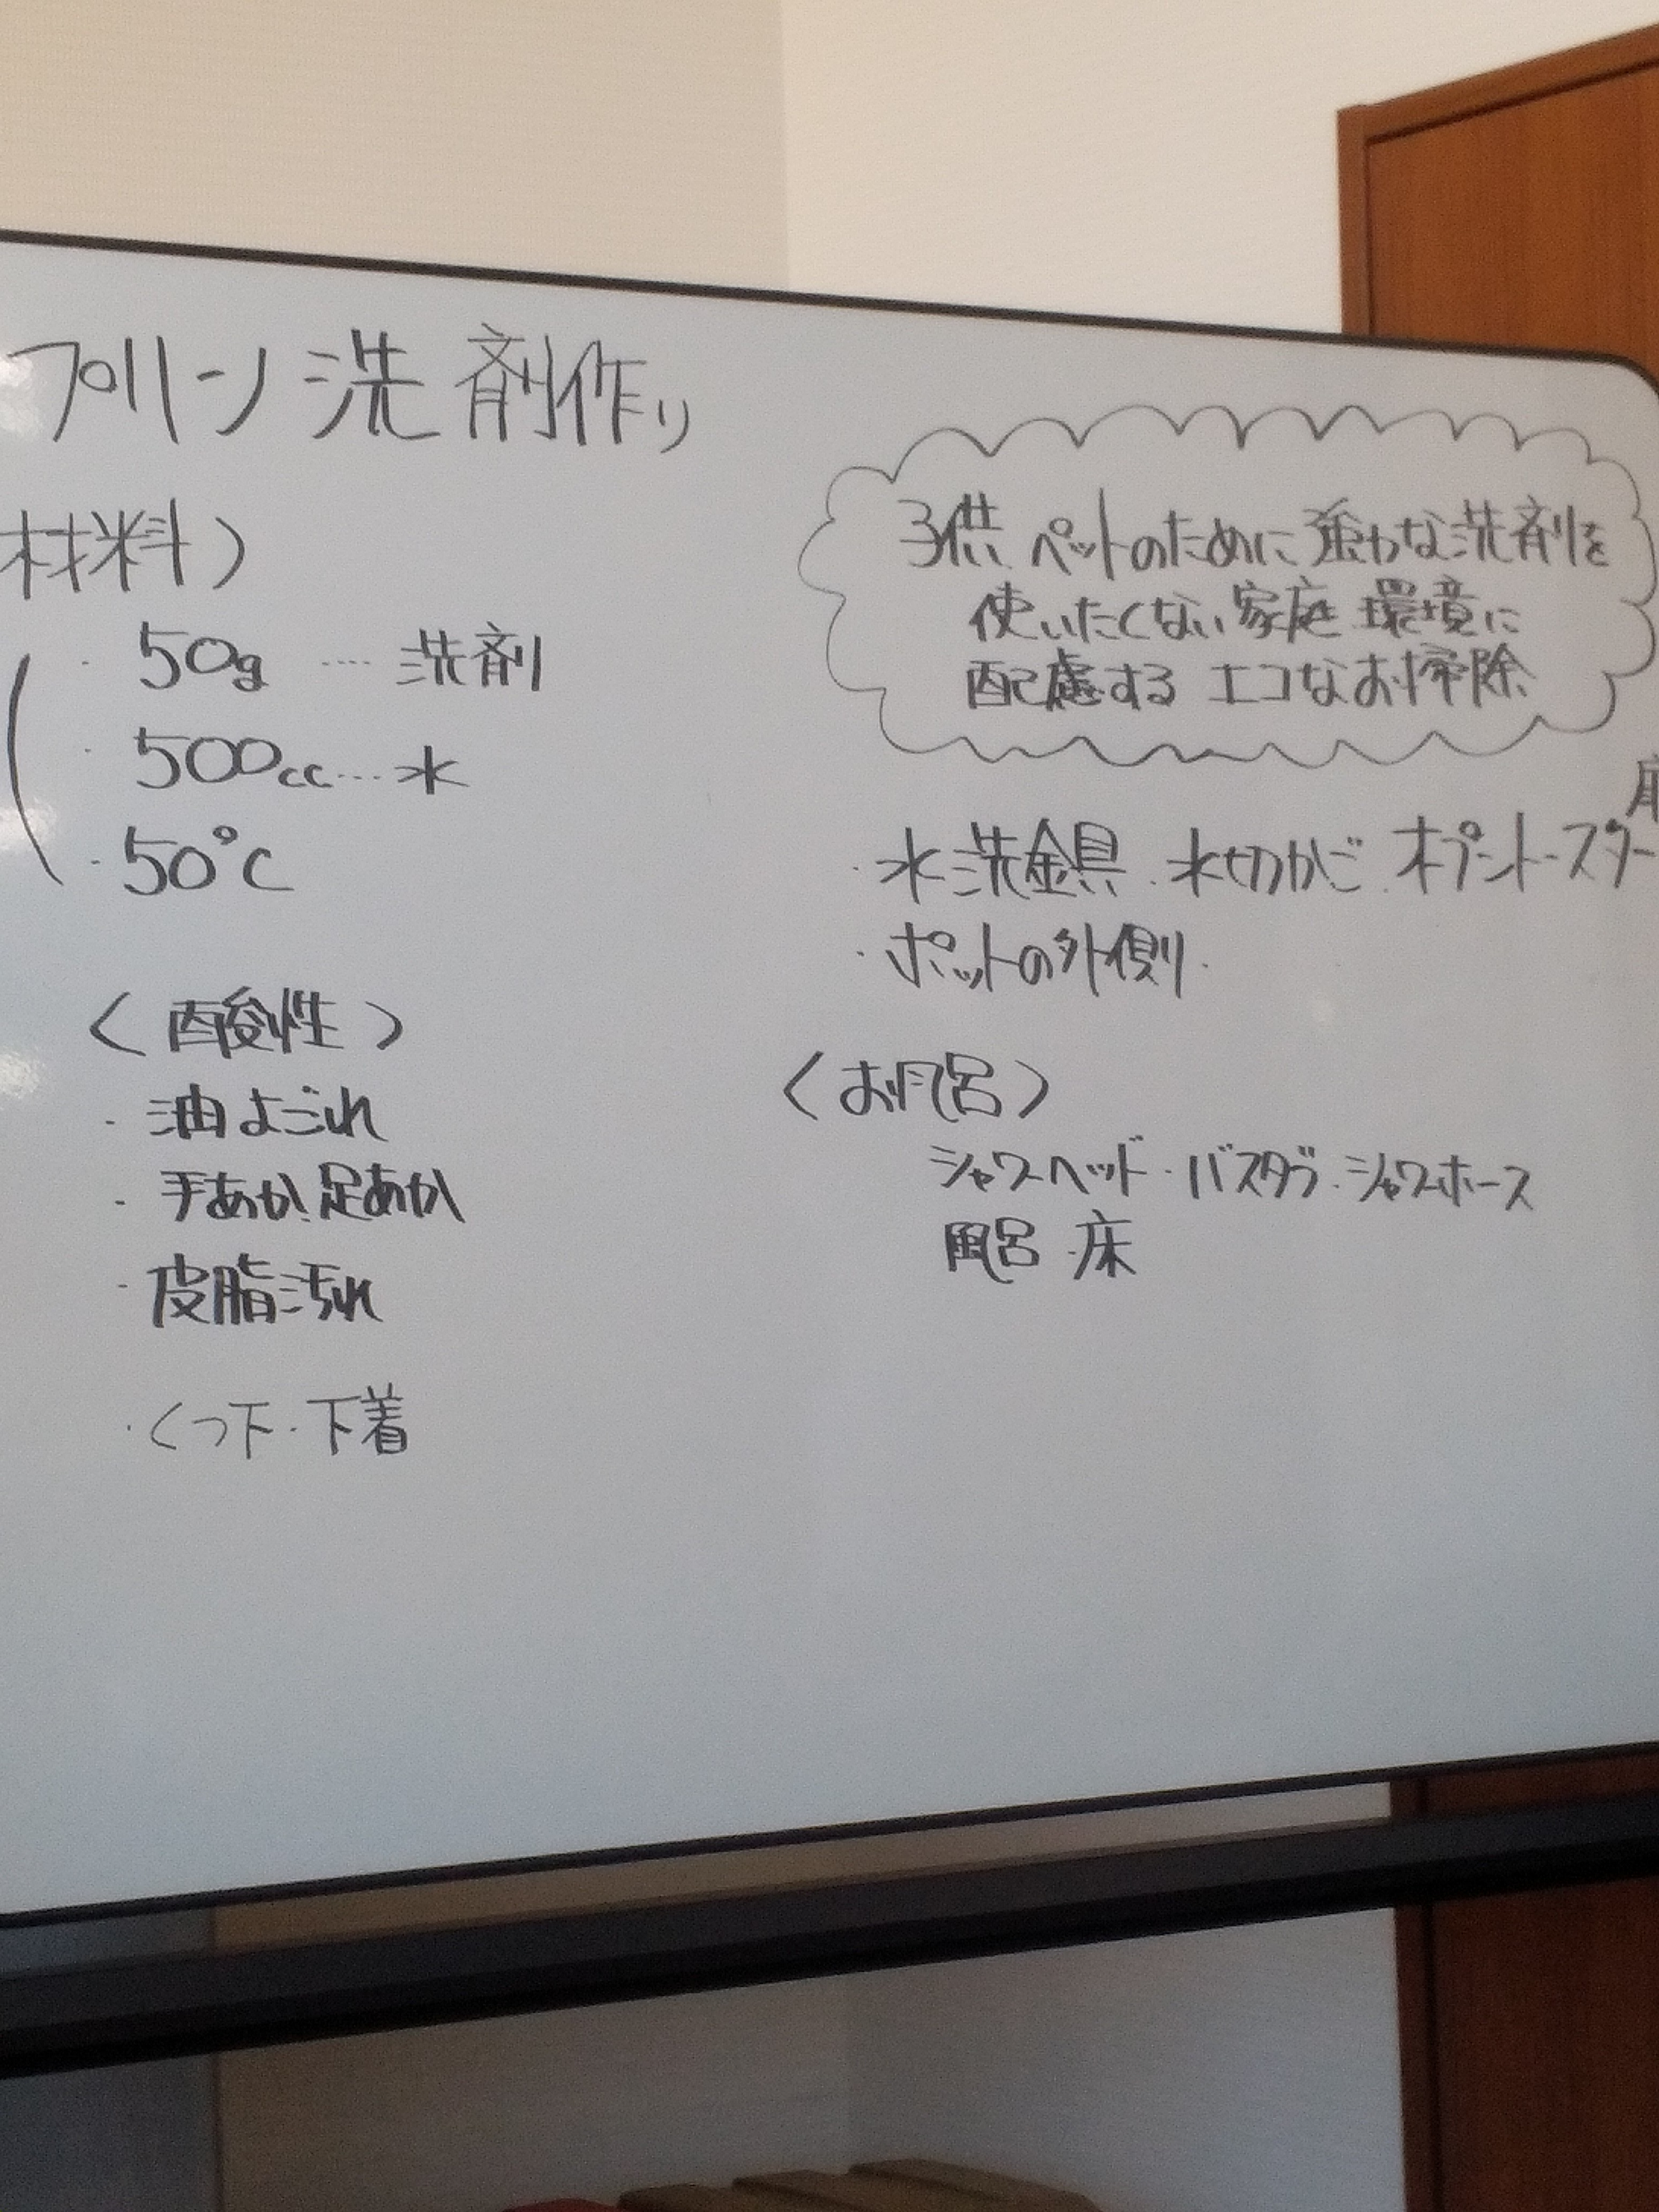 プリーン洗剤作り
材料)
・50g …. 洗剤
・500cc…. 水
・50℃
〈酸性〉
・油よごれ
・手あか.足あか
・皮脂汚れ
・くつ下・下着
子供 ペットのために強力な洗剤を
使いたくない家庭 環境に
配慮する エコなお掃除
・水洗金具.水切かご.
・ポットの外側.
〈お風呂〉
シャワーヘッド・バスタブ・シャワーホース
風呂 床